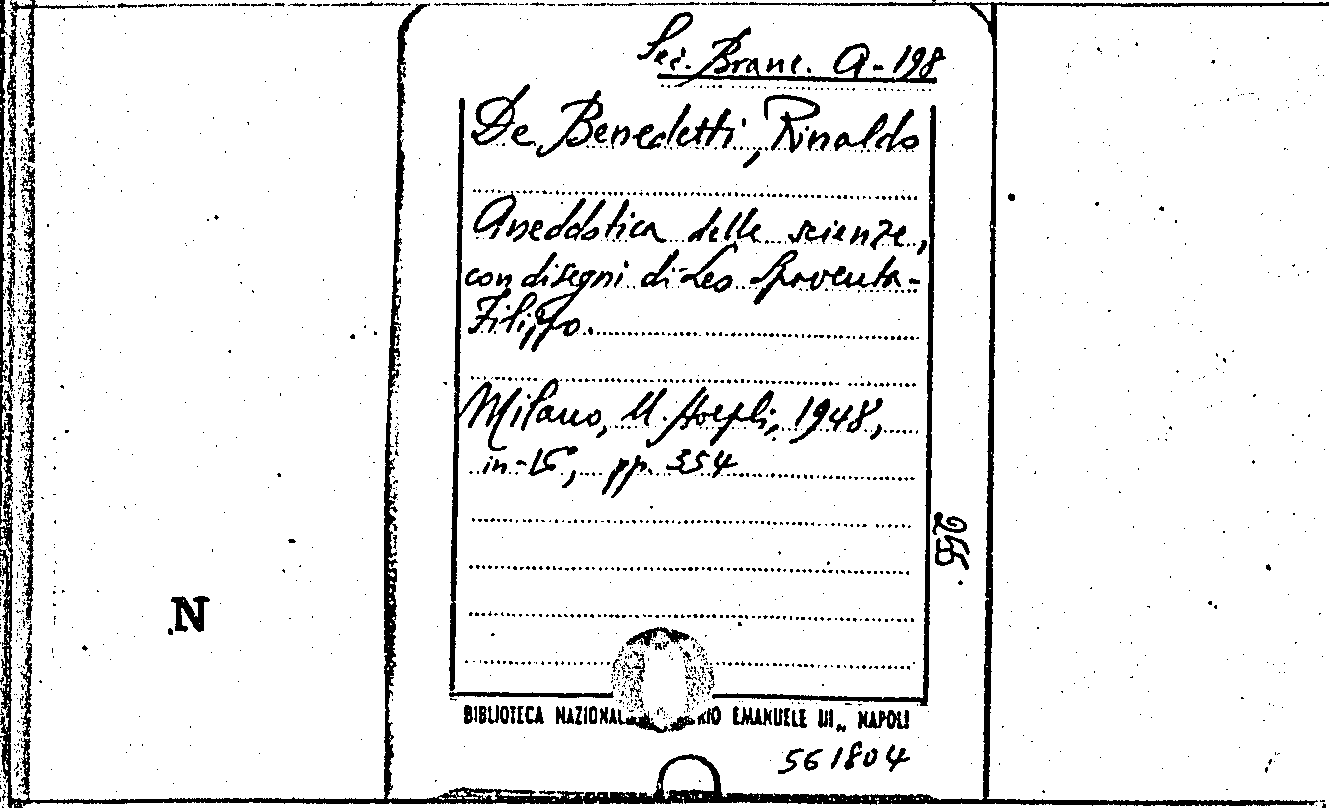 Sez. Branc. A-198
De Benedetti, Rinaldo
Aneddotica delle scienze,
con disegni di Leo Spaventa-
Filippo.
Milano, U. Hoepli, 1948,
in-16°, pp. 354
255
N
BIBLIOTECA NAZIONAL RIO EMANUELE III„ NAPOLI
561804